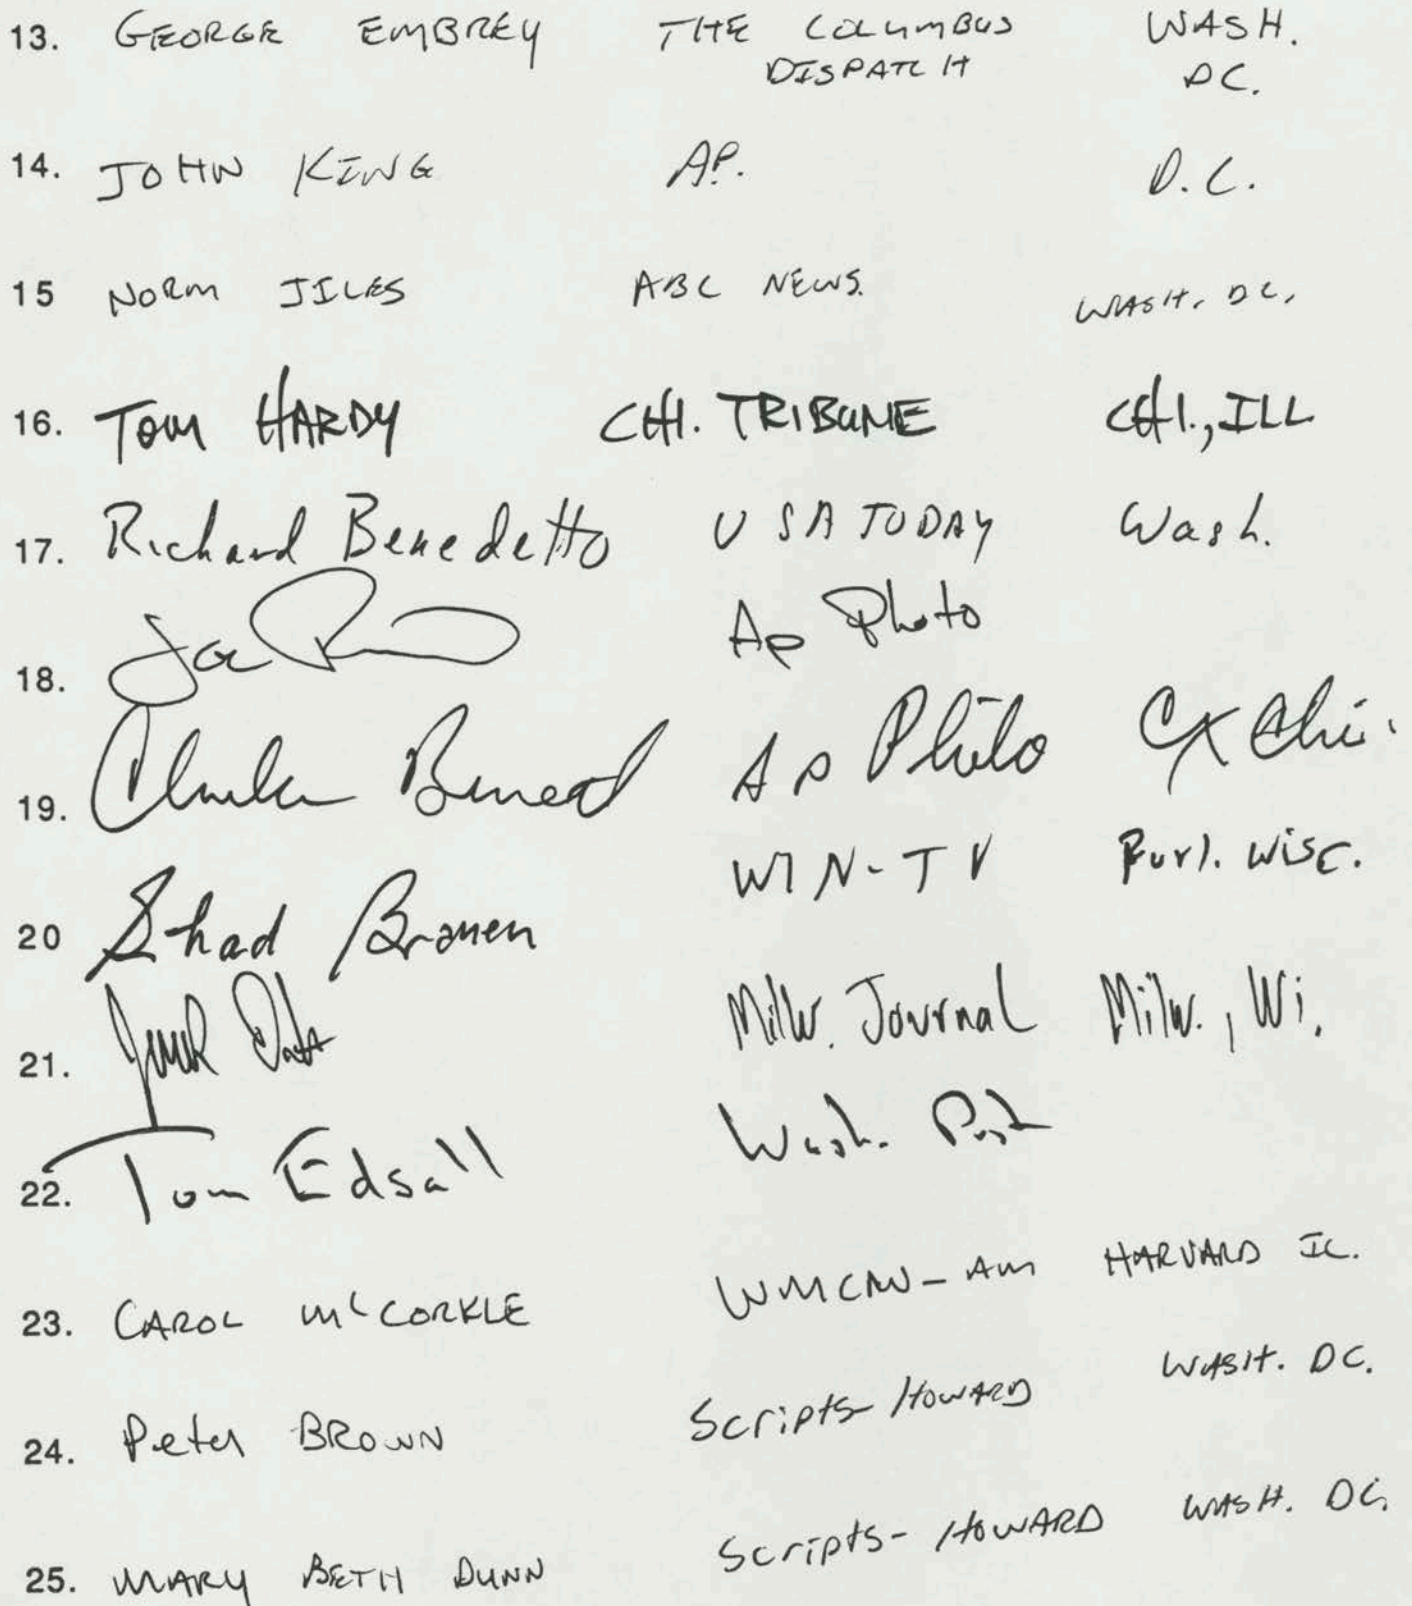 13. GEORGE EMBREY THE COLUMBUS DISPATCH WASH. DC.
14. JOHN KING AP. D.C.
15 NORM JILES ABC NEWS. WASH. DC.
16. TOM HARDY CHI. TRIBUNE CHI., ILL
17. Richard Benedetto USA TODAY Wash.
18. Joe AP Photo
19. Charles AP Photo Chi.
20 Shad Branen WIN-TV Burl. Wisc.
21. Milw. Journal Milw., Wi.
22. Tom Edsall Wash. Post
23. CAROL McCORKLE WMCW-AM HARVARD IL.
24. Peter BROWN Scripts-HOWARD WASH. DC.
25. MARY BETH DUNN Scripts-HOWARD WASH. DC.